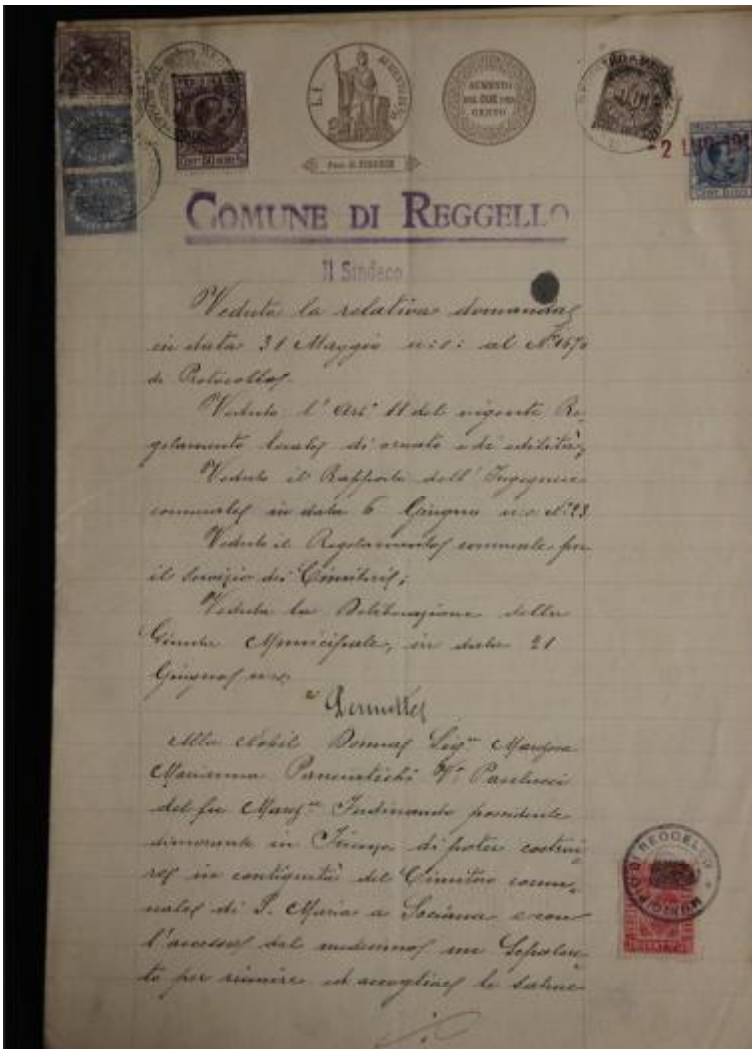 L.I.
AUMENTO
DEL DUE PER
CENTO
Prov. DI FIRENZE
2 LUG 191
COMUNE DI REGGELLO
Il Sindaco
Veduta la relativa domanda
in data 31 Maggio u: s: al N° 1670
di Protocollo,
Veduto l'Art° 11 del vigente Re-
golamento locale di ornato e di edilità,
Veduto il Rapporto dell'Ingegnere
comunale in data 6 Giugno u: s: N: 23
Veduto il Regolamento comunale per
il servizio dei Cimiteri;
Veduta la Deliberazione della
Giunta Municipale, in data 21
Giugno u: s:
Permette
Alla Nobil Donna Sig.ra March.sa
Marianna Panciatichi V.a Paulucci
del fu March.se Ferdinando possidente
dimorante in Firenze di poter costrui-
re in contiguità del Cimitero comu-
nale di S. Maria a Sociana e con
l'accesso dal medesimo un Sepolcre-
to per riunire ed accogliere le salme
MUNICIPIO DI REGGELLO